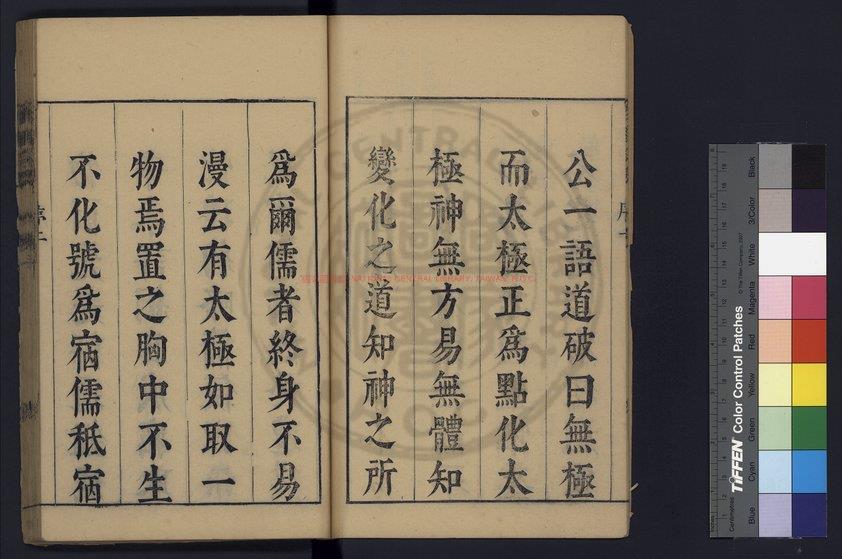 公一語道破曰無極
而太極正為點化太
極神無方易無體知
變化之道知神之所
為爾儒者終身不易
漫云有太極如取一
物焉置之胸中不生
不化號為宿儒秪宿
NATIONAL CENTRAL LIBRARY, TAIWAN (R.O.C.)
TIFFEN Color Control Patches
© The Tiffen Company, 2007
Centimetres
Inches
Blue
Cyan
Green
Yellow
Red
Magenta
White
3/Color
Black